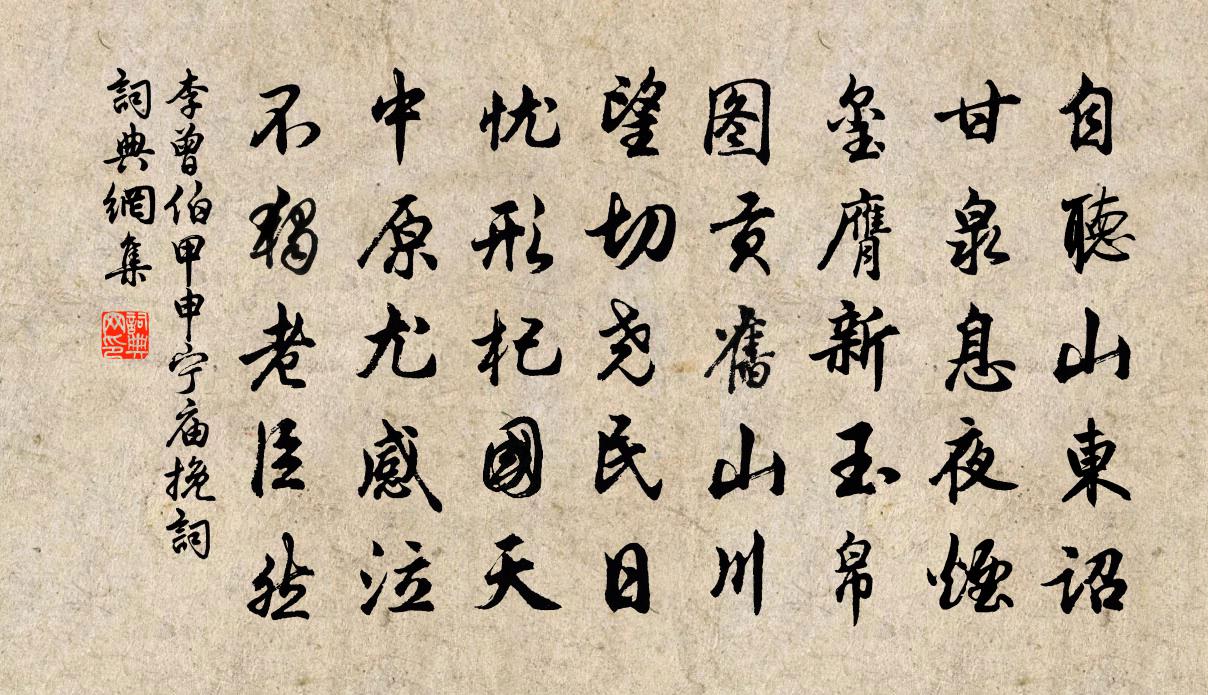 自聽山東詔
甘泉息夜煙
璽膺新玉帛
图贡舊山川
望切尧民日
忧形杞國天
中原尤感泣
不獨老臣然
李曾伯甲申宁庙挽詞
詞典網集
詞典网印